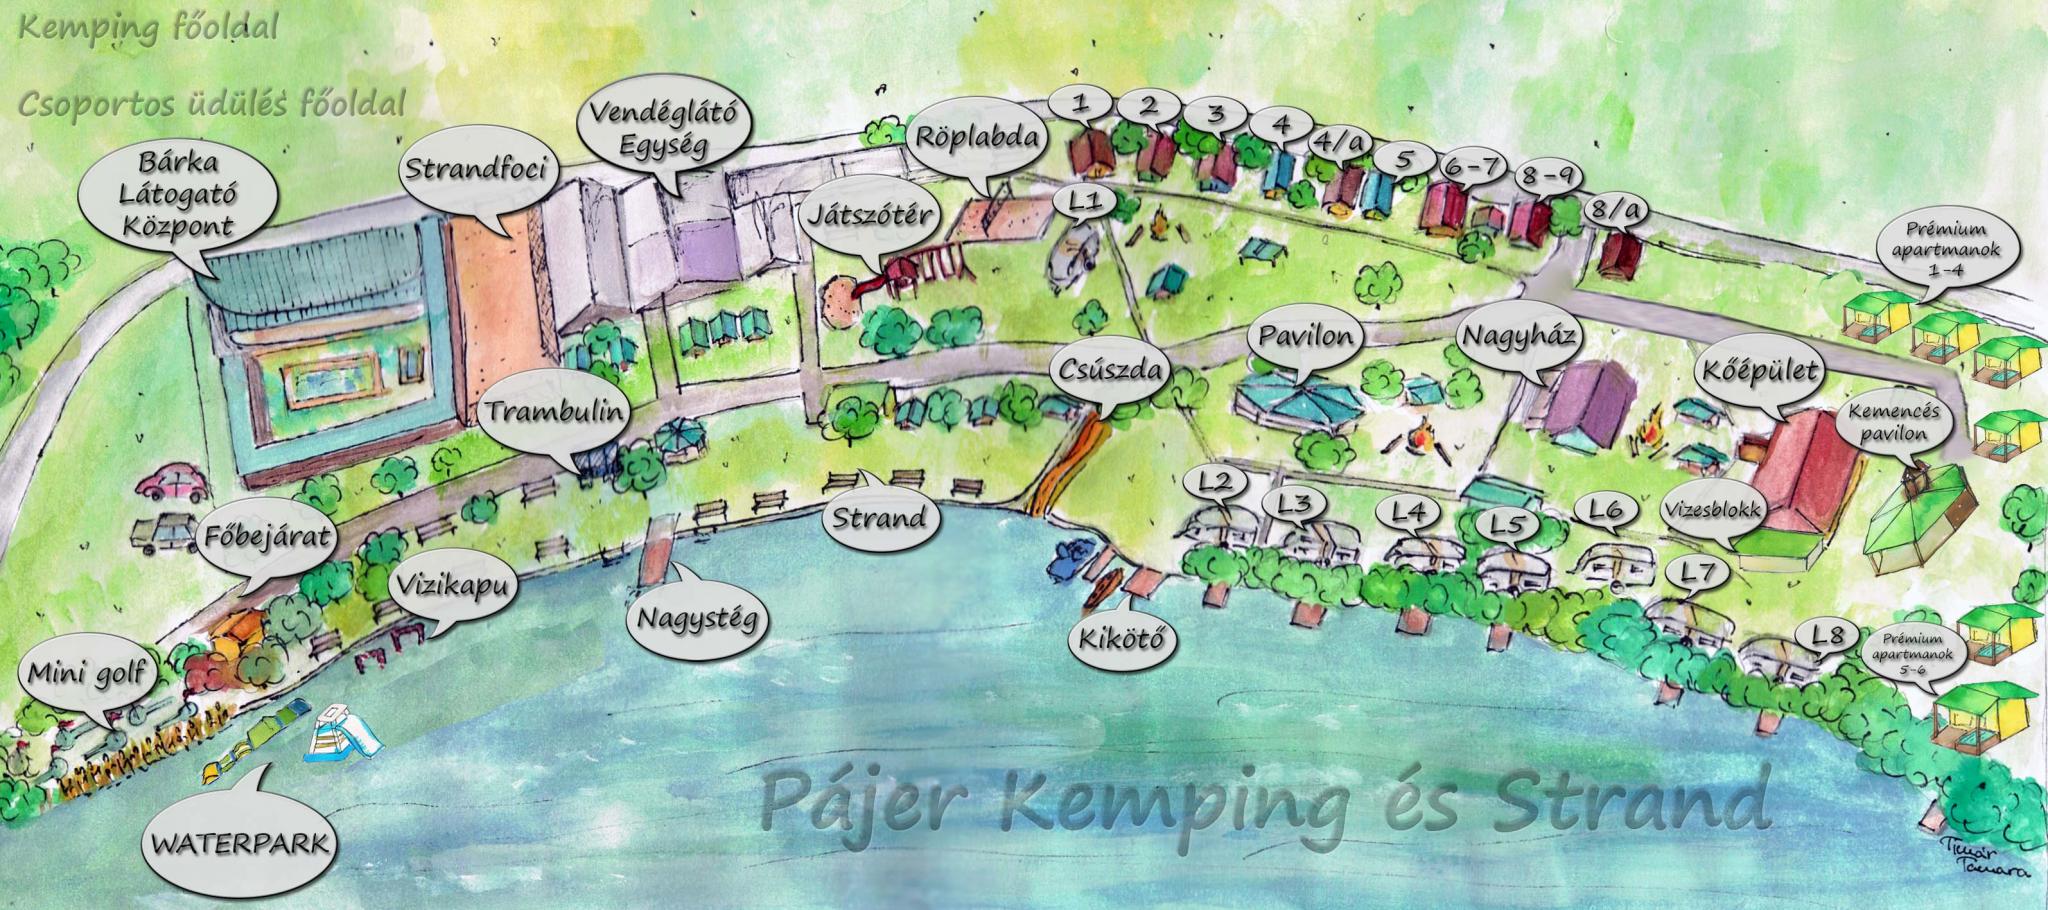 Kemping főoldal
Csoportos üdülés főoldal
Bárka
Látogató
Központ
Strandfoci
Vendéglátó
Egység
Röplabda
Játszótér
1
2
3
4
4/a
5
6-7
8-9
8/a
L1
Prémium
apartmanok
1-4
Trambulin
Csúszda
Pavilon
Nagyház
Kőépület
Kemencés
pavilon
Főbejárat
Vizikapu
Strand
Nagystég
Kikötő
L2
L3
L4
L5
L6
L7
L8
Vizesblokk
Prémium
apartmanok
5-6
Mini golf
WATERPARK
Pájer Kemping és Strand
Timár
Tamara